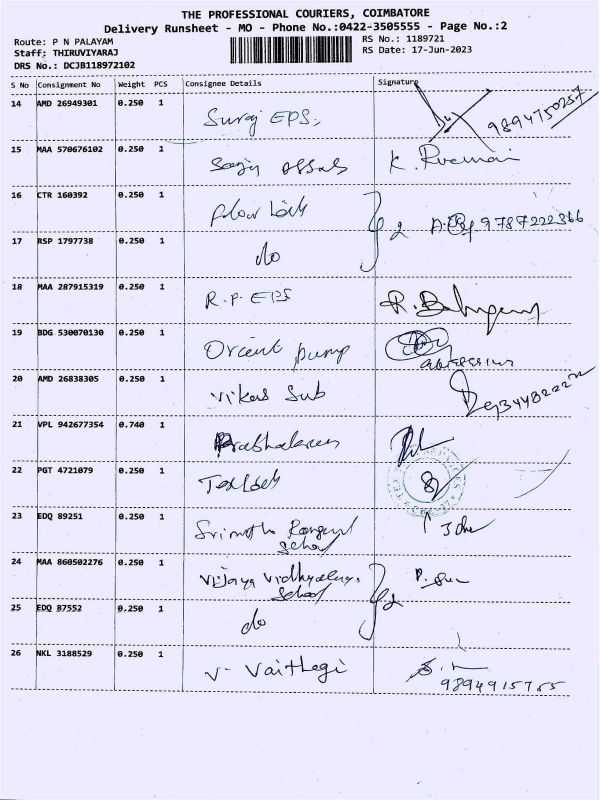 THE PROFESSIONAL COURIERS, COIMBATORE
Delivery Runsheet - MO - Phone No.:0422-3505555 - Page No.:2
Route: P N PALAYAM
RS No.: 1189721
Staff: THIRUVIYARAJ
RS Date: 17-Jun-2023
DRS No.: DCJB118972102
S No Consignment No Weight PCS Consignee Details Signature
14 AMD 26949301 0.250 1 Suraj EPS, 9894750257
15 MAA 570676102 0.250 1 K.
16 CTR 160392 0.250 1 2 9787222366
17 RSP 1797738 0.250 1 do
18 MAA 287915319 0.250 1 R.P. EPS R.
19 BDG 530070130 0.250 1 Orient pump
20 AMD 26838305 0.250 1 Vikas Sub
21 VPL 942677354 0.740 1 Prabhakaran
22 PGT 4721079 0.250 1
23 EDQ 89251 0.250 1 School
24 MAA 860502276 0.250 1 Vijaya Vidhyalaya 2
School
25 EDQ 87552 0.250 1 do
26 NKL 3188529 0.250 1 V. Vaithegi
9894915755